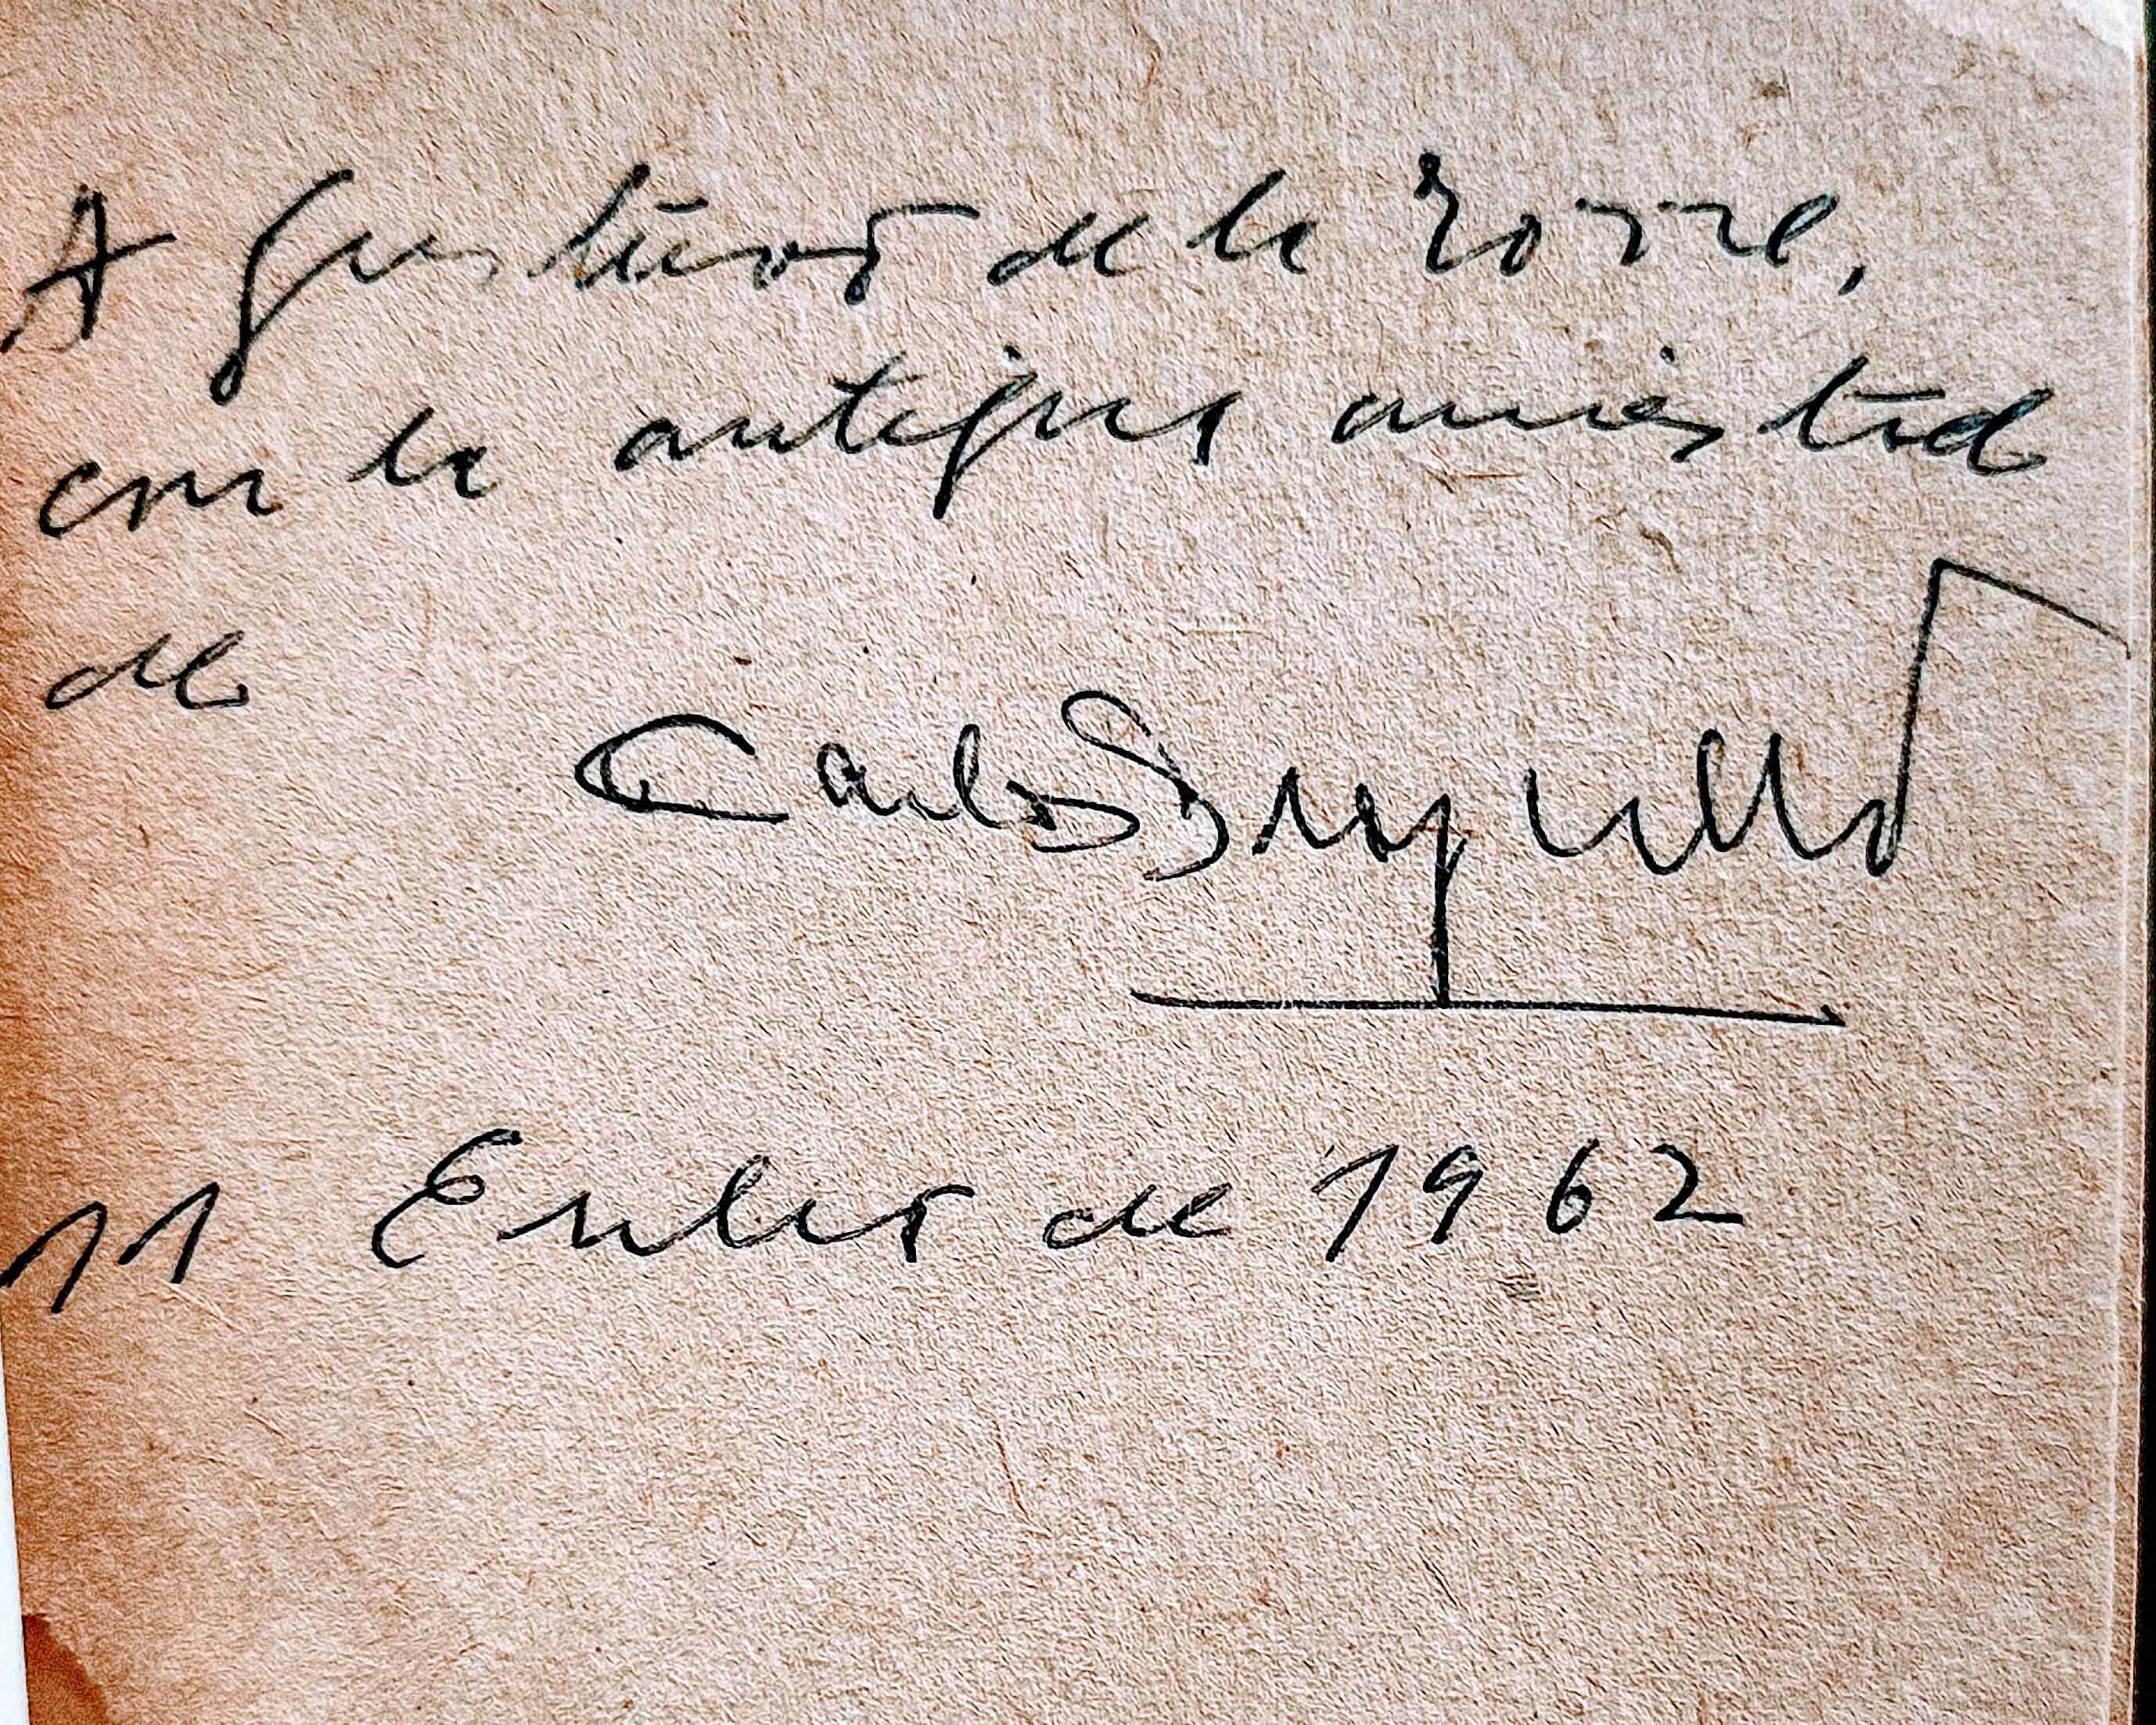 A Gustavo de la Torre,
con la antigua amistad
de
Carlos
11 Enero de 1962